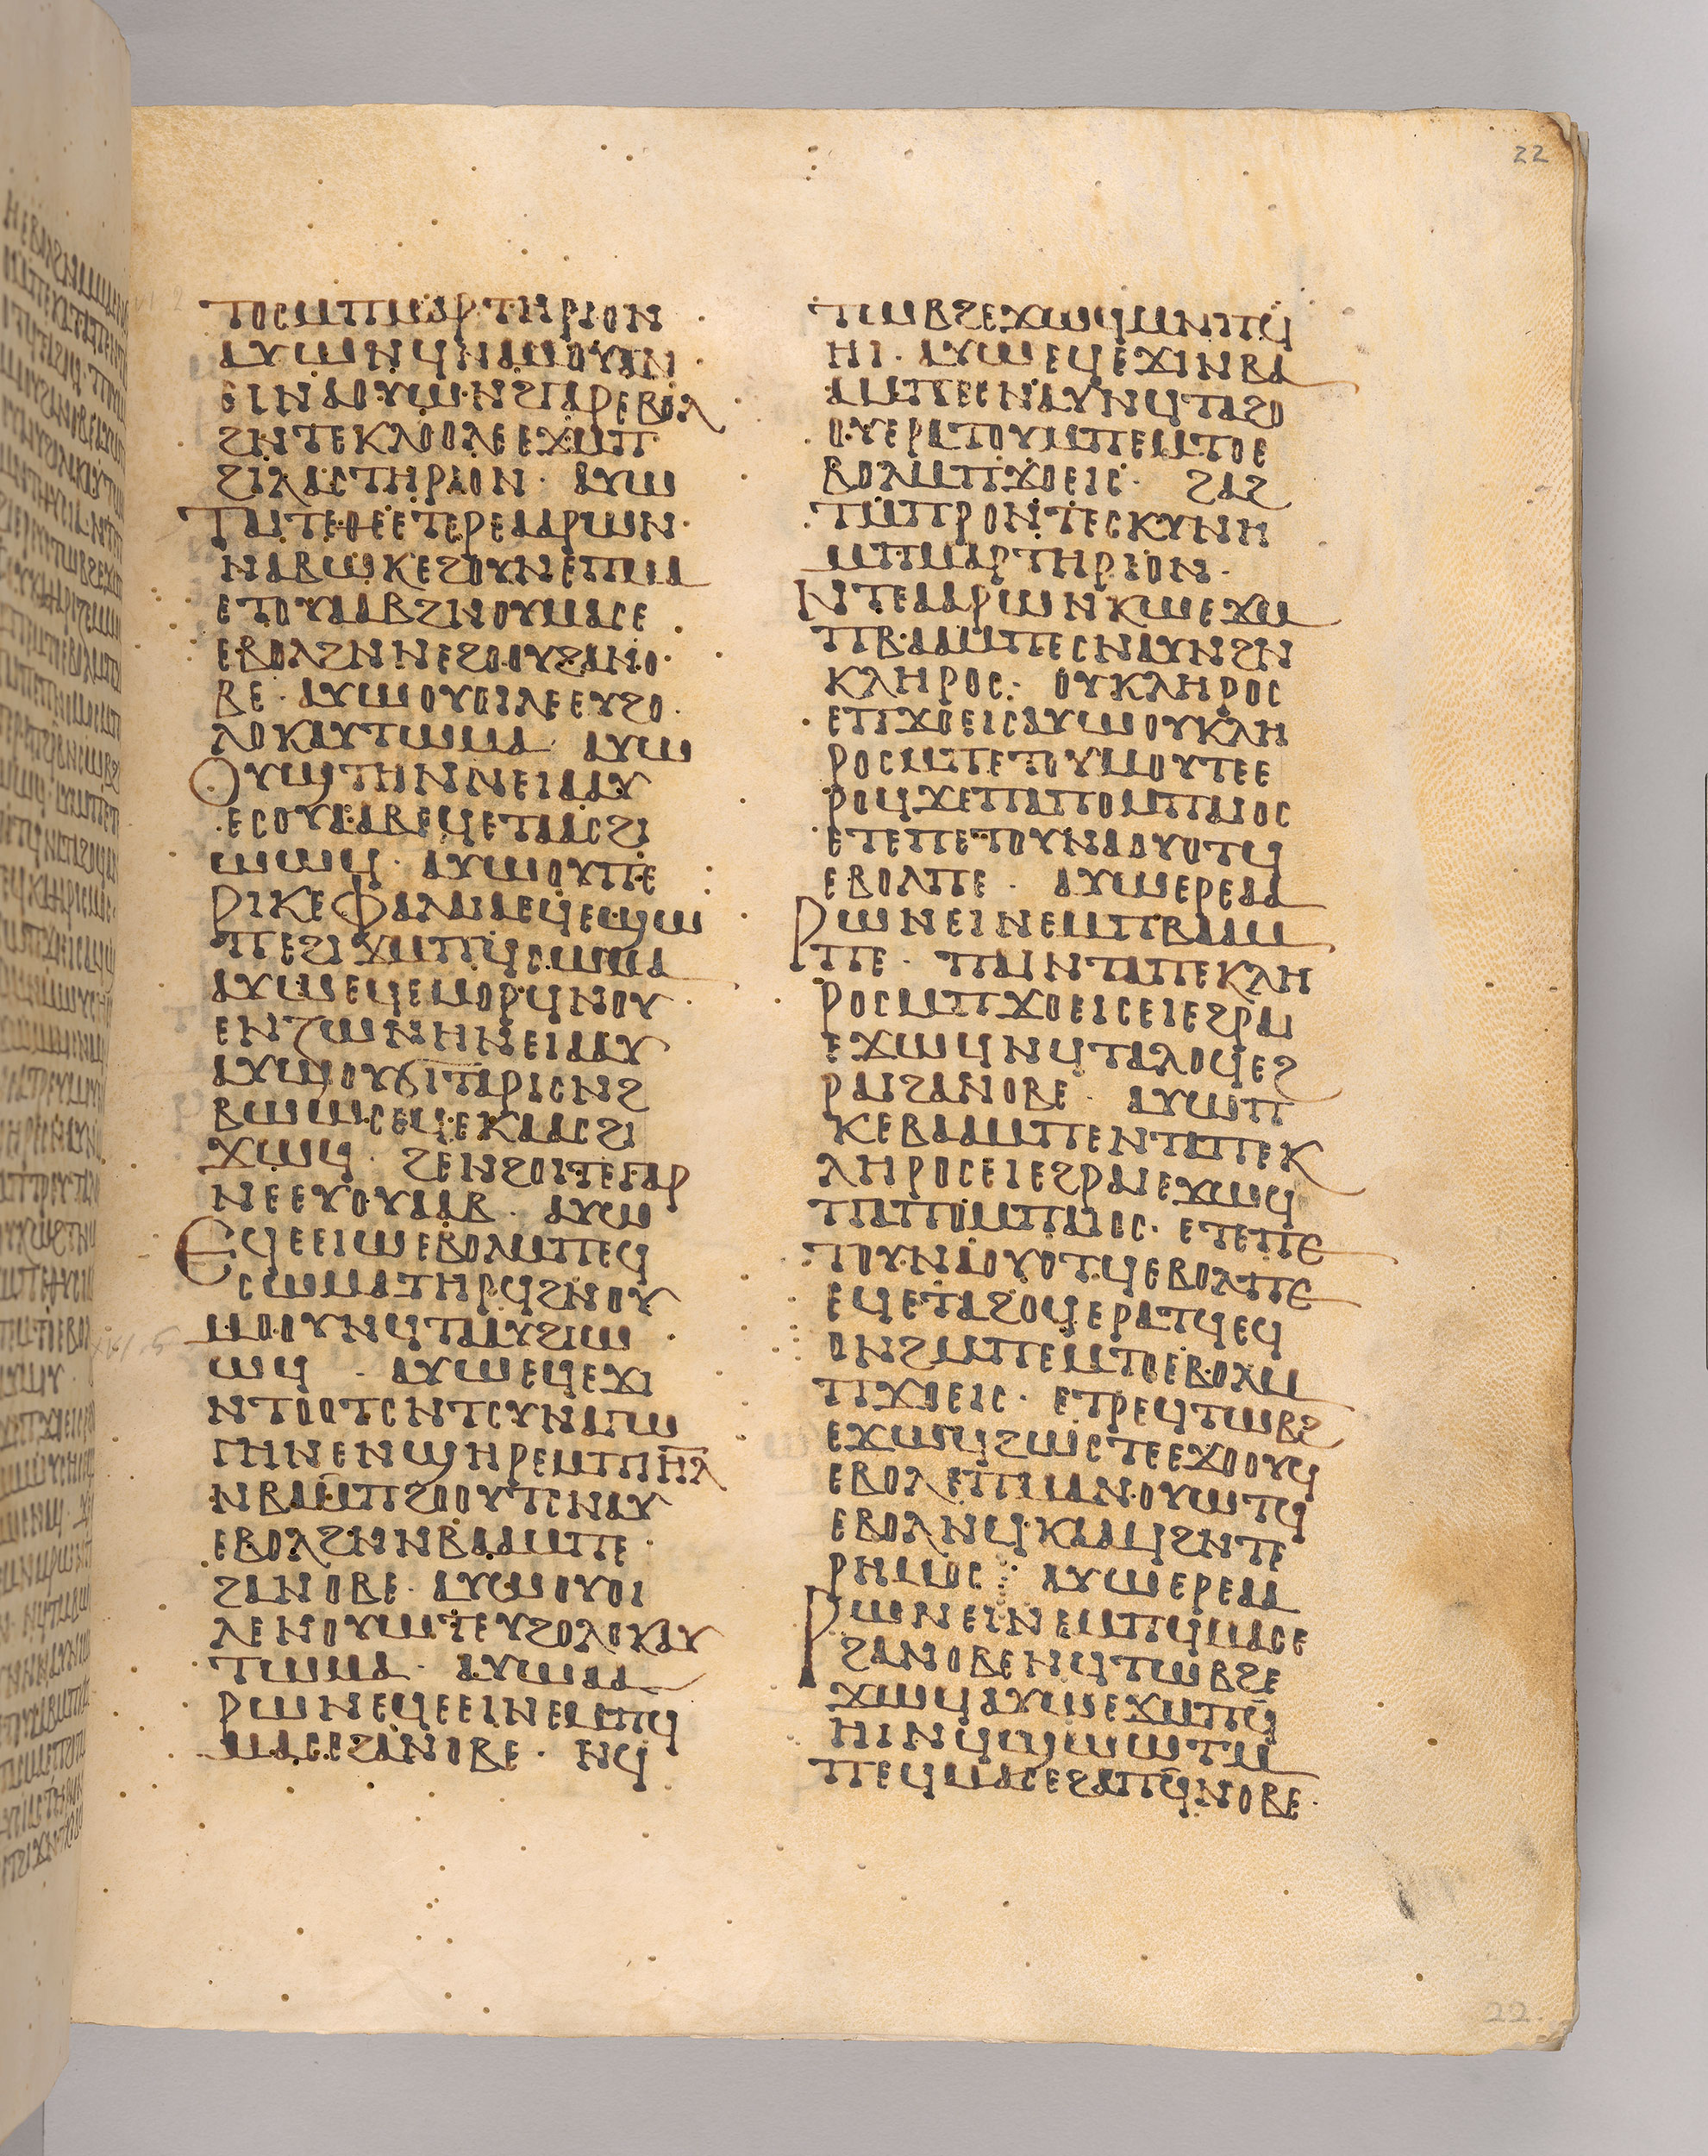 22
ⲧⲟⲥⲙⲡⲙⲁⲣⲧⲏⲣⲓⲟⲛ
ⲁⲩⲱⲛϥⲛⲁⲙⲟⲩⲁⲛ
ⲉⲓⲛⲁⲟⲩⲱⲛϩⲅⲁⲣⲉⲃⲟⲗ
ϩⲛⲧⲉⲕⲗⲟⲟⲗⲉⲉϫⲙⲡ
ϩⲓⲗⲁⲥⲧⲏⲣⲓⲟⲛ· ⲁⲩⲱ
ⲧⲁⲓⲧⲉⲑⲉⲉⲧⲉⲣⲉⲁⲁⲣⲱⲛ·
ⲛⲁⲃⲱⲕⲉϩⲟⲩⲛⲉⲡⲙⲁ
ⲉⲧⲟⲩⲁⲁⲃϩⲛⲟⲩⲙⲁⲥⲉ
ⲉⲃⲟⲗϩⲛⲛⲉϩⲟⲟⲩϩⲁⲛⲟ·
ⲃⲉ· ⲁⲩⲱⲟⲩⲟⲓⲗⲉⲉⲩϩⲟ·
ⲗⲟⲕⲁⲩⲧⲱⲙⲁ ⲁⲩⲱ
ⲟⲩϣⲧⲏⲛⲛⲉⲓⲁⲁⲩ
ⲉⲥⲟⲩⲁⲁⲃⲉϥⲉⲧⲁⲁⲥϩⲓ
ⲱⲱϥ· ⲁⲩⲱⲟⲩⲡⲉ
ⲣⲓⲕⲉⲫⲁⲗⲁⲓⲁⲉϥⲉϣⲱ
ⲡⲉϩⲓϫⲙⲡϥⲥⲱⲙⲁ
ⲁⲩⲱⲉϥⲉⲙⲟⲣϥⲛⲟⲩ
ⲉⲛⲍⲱⲛⲏⲛⲉⲓⲁⲁⲩ
ⲁⲩⲱⲟⲩϭⲓⲧⲁⲣⲓⲥⲛϩ
ⲃⲱⲱⲥⲉϥⲉⲕⲁⲁⲥϩⲓ
ϫⲱϥ· ϩⲉⲛϩⲟⲓⲧⲉⲅⲁⲣ
ⲛⲉⲉⲩⲟⲩⲁⲁⲃ· ⲁⲩⲱ
ⲉϥⲉⲉⲓⲱⲉⲃⲟⲗⲙⲡⲉϥ
ⲥⲱⲙⲁⲧⲏⲣϥϩⲛⲟⲩ
ⲙⲟⲟⲩⲛϥⲧⲁⲁⲩϩⲓⲱ
ⲱϥ · ⲁⲩⲱⲉϥⲉϫⲓ
ⲛⲧⲟⲟⲧⲥⲛⲧⲥⲩⲛⲁⲅⲱ
ⲅⲏⲛⲉⲛϣⲏⲣⲉⲙⲡⲓⲏⲗ
ⲛⲃⲁⲙⲡϩⲟⲟⲩⲧⲥⲛⲁⲩ
ⲉⲃⲟⲗϩⲛⲛⲃⲁⲁⲙⲡⲉ·
ϩⲁⲛⲟⲃⲉ· ⲁⲩⲱⲟⲩⲟⲓ
ⲗⲉⲛⲟⲩⲱⲧⲉⲩϩⲟⲗⲟⲕⲁⲩ
ⲧⲱⲙⲁ· ⲁⲩⲱⲁⲁ
ⲣⲱⲛⲉϥⲉⲉⲓⲛⲉⲙⲡϥ
ⲙⲁⲥⲉϩⲁⲛⲟⲃⲉ· ⲛϥ
ⲧⲱⲃϩⲉϫⲱϥⲙⲛⲡϥ
ⲏⲓ· ⲁⲩⲱⲉϥⲉϫⲓⲛⲃⲁ
ⲁⲙⲡⲉⲥⲛⲁⲩⲛϥⲧⲁϩⲟ
ⲟⲩⲉⲣⲁⲧⲟⲩⲙⲡⲉⲙⲧⲟⲉ
ⲃⲟⲗⲙⲡϫⲟⲉⲓⲥ· ϩⲁϩ
ⲧⲙⲡⲣⲟⲛⲧⲉⲥⲕⲩⲛⲏ
ⲙⲡⲙⲁⲣⲧⲏⲣⲓⲟⲛ·
ⲛⲧⲉⲁⲁⲣⲱⲛⲕⲱⲉϫⲙ
ⲡⲃⲁⲁⲙⲡⲉⲥⲛⲁⲩⲛϩⲛ
ⲕⲗⲏⲣⲟⲥ· ⲟⲩⲕⲗⲏⲣⲟⲥ
ⲉⲡϫⲟⲉⲓⲥⲁⲩⲱⲟⲩⲕⲗⲏ
ⲣⲟⲥⲙⲡⲉⲧⲟⲩⲙⲟⲩⲧⲉⲉ
ⲣⲟϥϫⲉⲡⲁⲡⲟⲙⲡⲁⲓⲟⲥ
ⲉⲧⲉⲡⲉⲧⲟⲩⲛⲁⲟⲩⲟⲧϥ
ⲉⲃⲟⲗⲡⲉ· ⲁⲩⲱⲉⲣⲉⲁⲁ
ⲣⲱⲛⲉⲓⲛⲉⲙⲡⲃⲁⲁⲙ
ⲡⲉ· ⲡⲁⲓⲛⲧⲁⲡⲉⲕⲗⲏ
ⲣⲟⲥⲙⲡϫⲟⲉⲓⲥⲉⲓⲉϩⲣⲁⲓ
ⲉϫⲱϥⲛϥⲧⲁⲗⲟϥⲉϩ
ⲣⲁⲓϩⲁⲛⲟⲃⲉ· ⲁⲩⲱⲡ
ⲕⲉⲃⲁⲁⲙⲡⲉⲛⲧⲁⲡⲉⲕ
ⲗⲏⲣⲟⲥⲉⲓⲉϩⲣⲁⲓⲉϫⲱϥ
ⲡⲁⲡⲟⲙⲡⲁⲓⲟⲥ· ⲉⲧⲉⲡⲉ
ⲧⲟⲩⲛⲁⲟⲩⲟⲧϥⲉⲃⲟⲗⲡⲉ
ⲉϥⲉⲧⲁϩⲟϥⲉⲣⲁⲧϥⲉϥ
ⲟⲛϩⲙⲡⲉⲙⲧⲟⲉⲃⲟⲗⲙ
ⲡϫⲟⲉⲓⲥ· ⲉⲧⲣⲉϥⲧⲱⲃϩ
ⲉϫⲱϥϩⲱⲥⲧⲉⲉϫⲟⲟⲩϥ
ⲉⲃⲟⲗⲉⲡⲙⲁⲛⲟⲩⲱⲧϥ
ⲉⲃⲟⲗⲛϥⲕⲁⲁϥϩⲛⲧⲉ
ⲣⲏⲙⲟⲥ: ⲁⲩⲱⲉⲣⲉⲁⲁ
ⲣⲱⲛⲉⲓⲛⲉⲙⲡϥⲙⲁⲥⲉ
ϩⲁⲛⲟⲃⲉⲛϥⲧⲱⲃϩⲉ
ϫⲱϥⲁⲩⲱⲉϫⲙⲡϥ
ⲏⲓⲛϥϣⲱⲱⲧⲙ
ⲡⲉϥⲙⲁⲥⲉϩⲁⲡϥⲛⲟⲃⲉ·
22